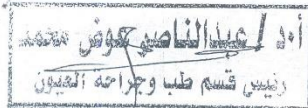 أ.د / عبدالناصر عوض محمد
رئيس قسم طب وجراحة العيون